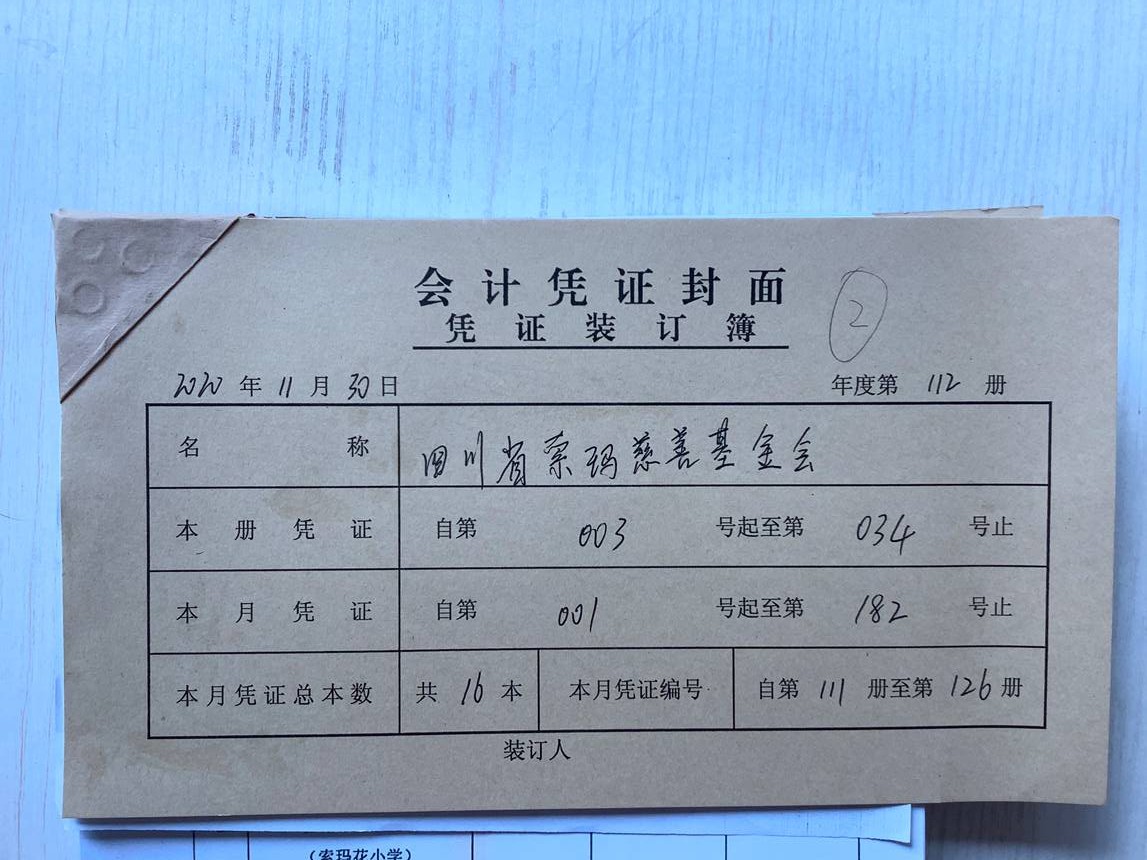 会计凭证封面
凭证装订簿
2
2020年11月30日 年度第112册
名称 四川省索玛慈善基金会
本册凭证 自第003号起至第034号止
本月凭证 自第001号起至第182号止
本月凭证总本数 共16本 本月凭证编号 自第111册至第126册
装订人
（索玛花小学）